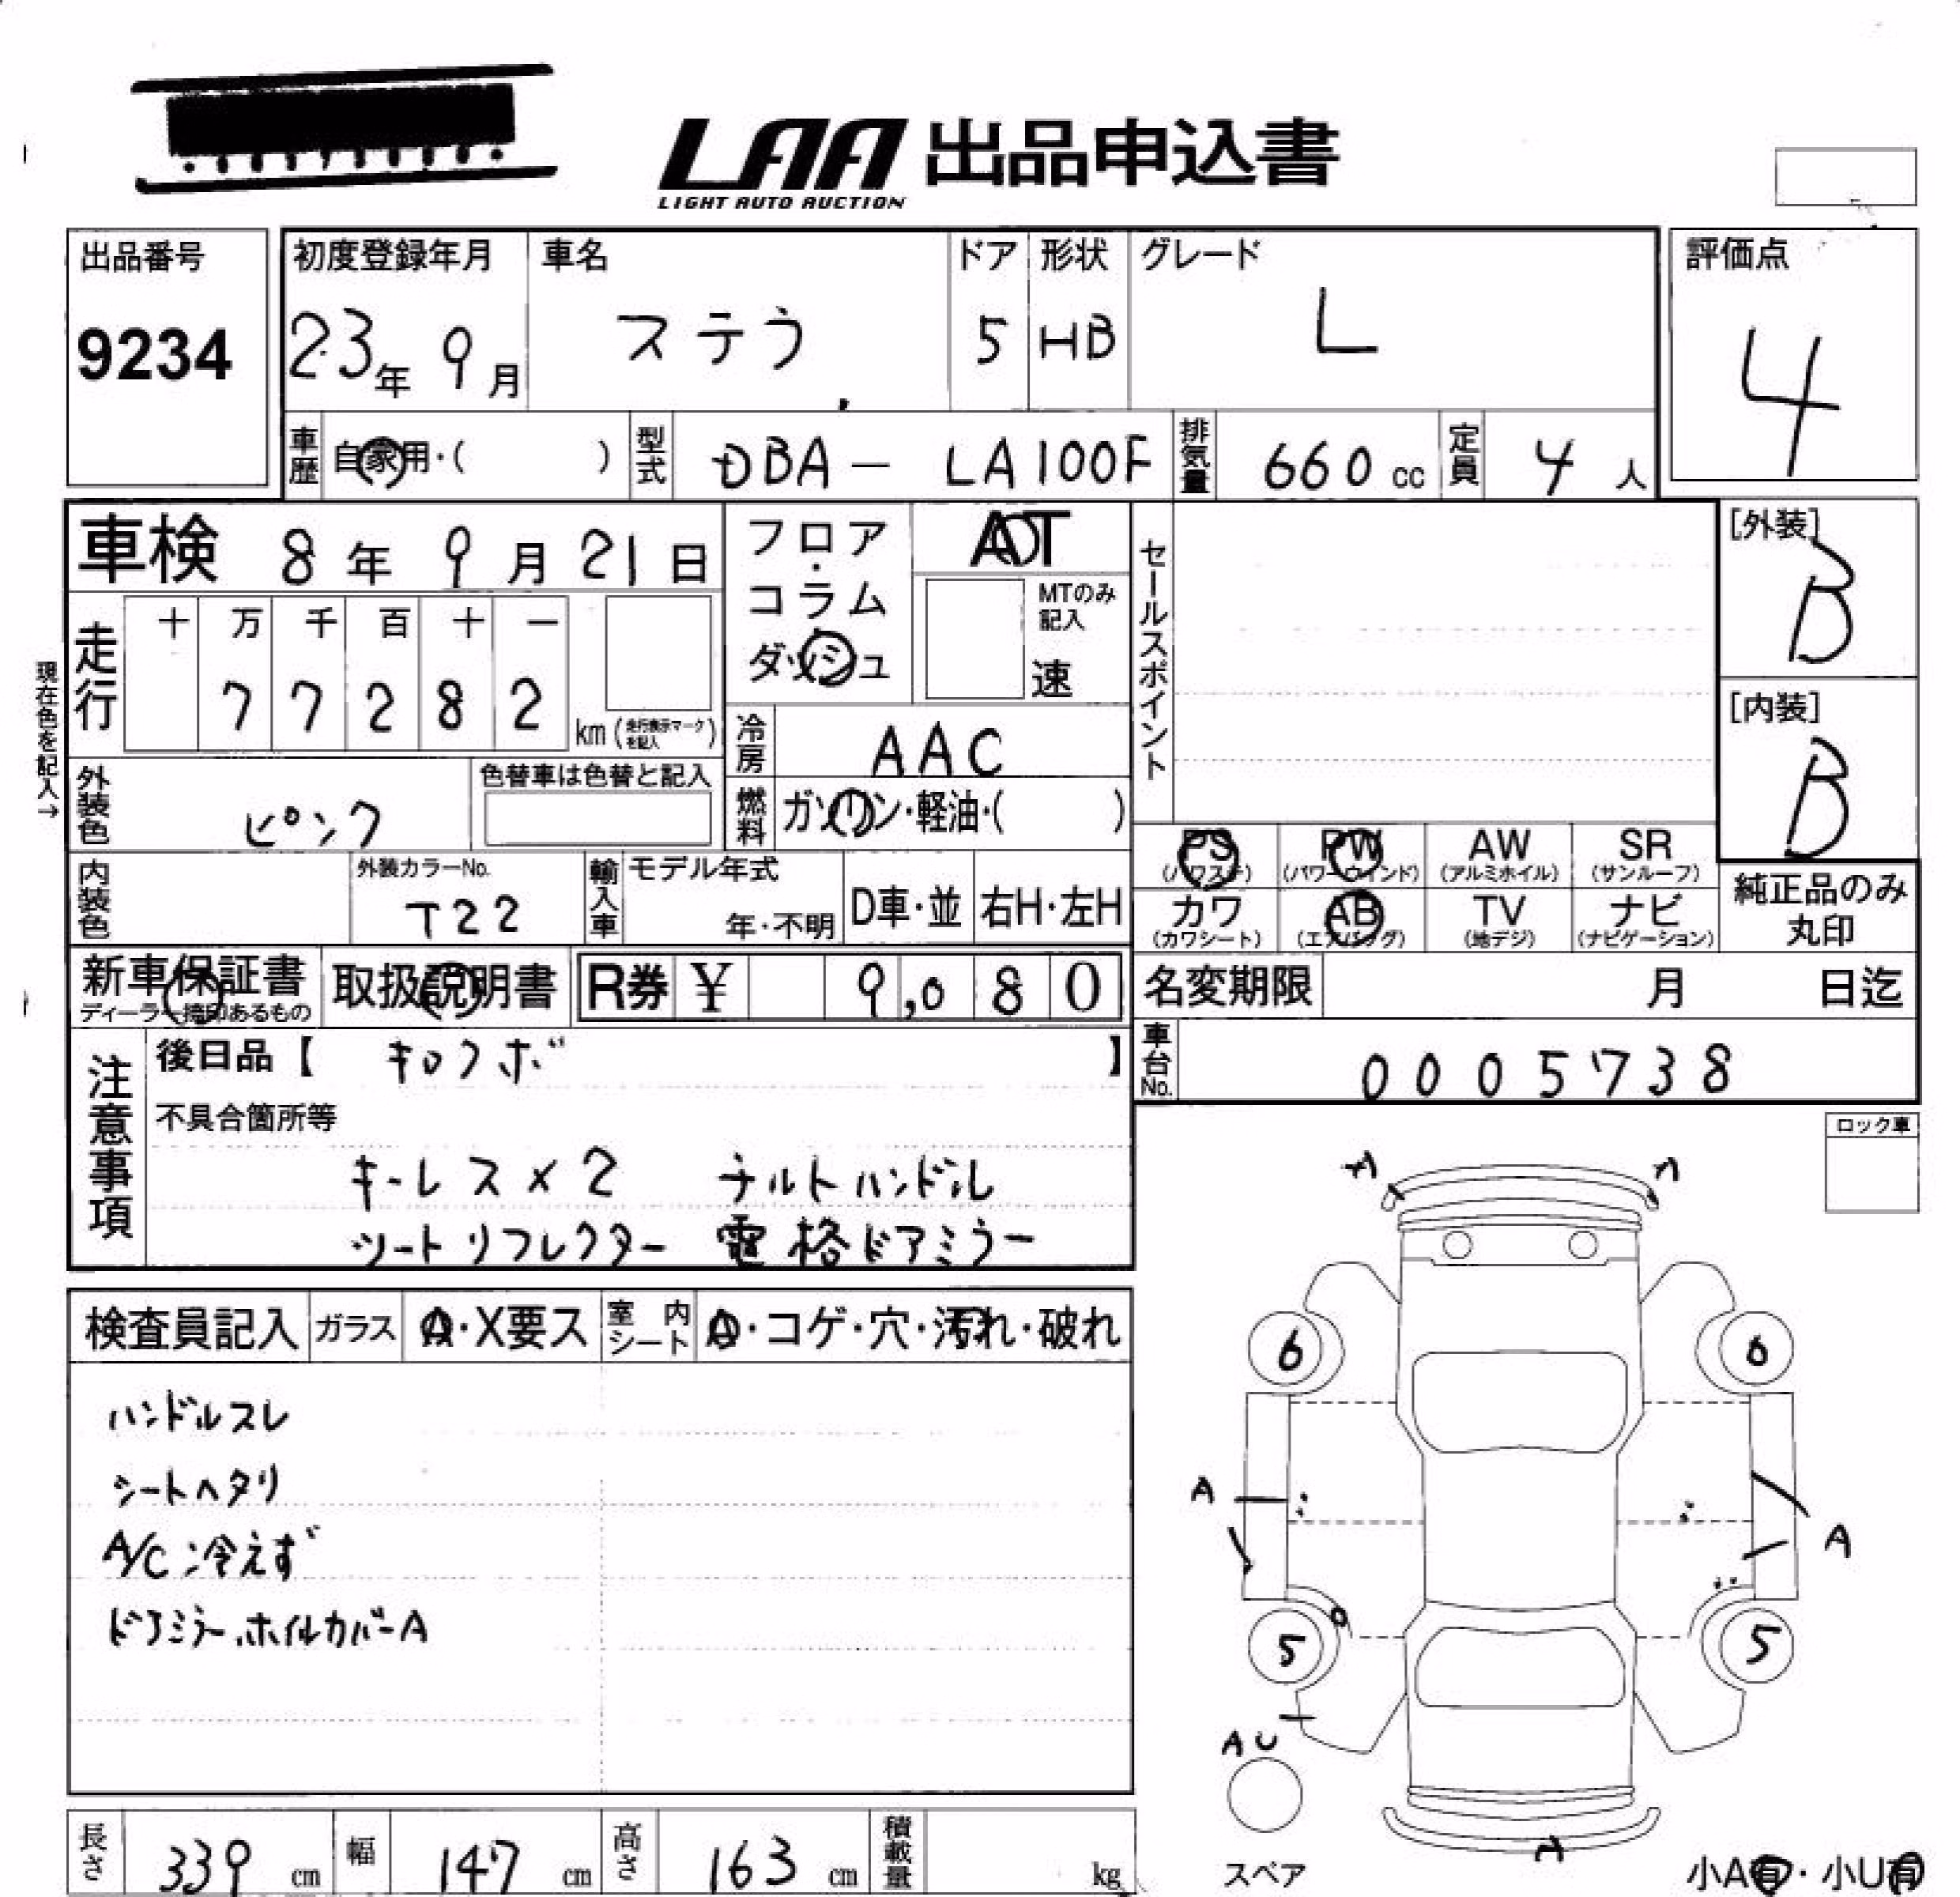 LAA 出品申込書
LIGHT AUTO AUCTION
出品番号
9234
初度登録年月
23年 9月
車名
ステラ
ドア
5
形状
HB
グレード
L
評価点
4
車歴 自家用・( )
型式 DBA - LA100F
排気量 660 cc
定員 4 人
車検 8年 9月 21日
フロア・コラム
ダッシュ
AT
MTのみ記入
速
セールスポイント
[外装]
B
[内装]
B
現在色を記入→
走行
十 万 千 百 十 一
7 7 2 8 2
km (走行表示マークを記入)
冷房 AAC
外装色 ピンク
色替車は色替と記入
燃料 ガソリン・軽油・( )
内装色
外装カラーNo.
T22
輸入車
モデル年式
年・不明
D車・並
右H・左H
PS (パワステ)
PW (パワーウインド)
AW (アルミホイル)
SR (サンルーフ)
カワ (カワシート)
AB (エアバッグ)
TV (地デジ)
ナビ (ナビゲーション)
純正品のみ
丸印
新車保証書
ディーラー捺印あるもの
取扱説明書
R券 ¥ 9,080
名変期限 月 日迄
車台No. 0005738
注意事項
後日品【 キロクボ 】
不具合箇所等
キーレス×2 チルトハンドル
シートリフレクター 電格ドアミラー
ロック車
検査員記入
ガラス A・X要ス
室内シート A・コゲ・穴・汚れ・破れ
ハンドルスレ
シートヘタリ
A/C冷えず
ドアミラー、ホイルカバーA
A A
6 6
A A
5 5
A U
スペア
A
小A有・小U有
長さ 339 cm
幅 147 cm
高さ 163 cm
積載量 kg